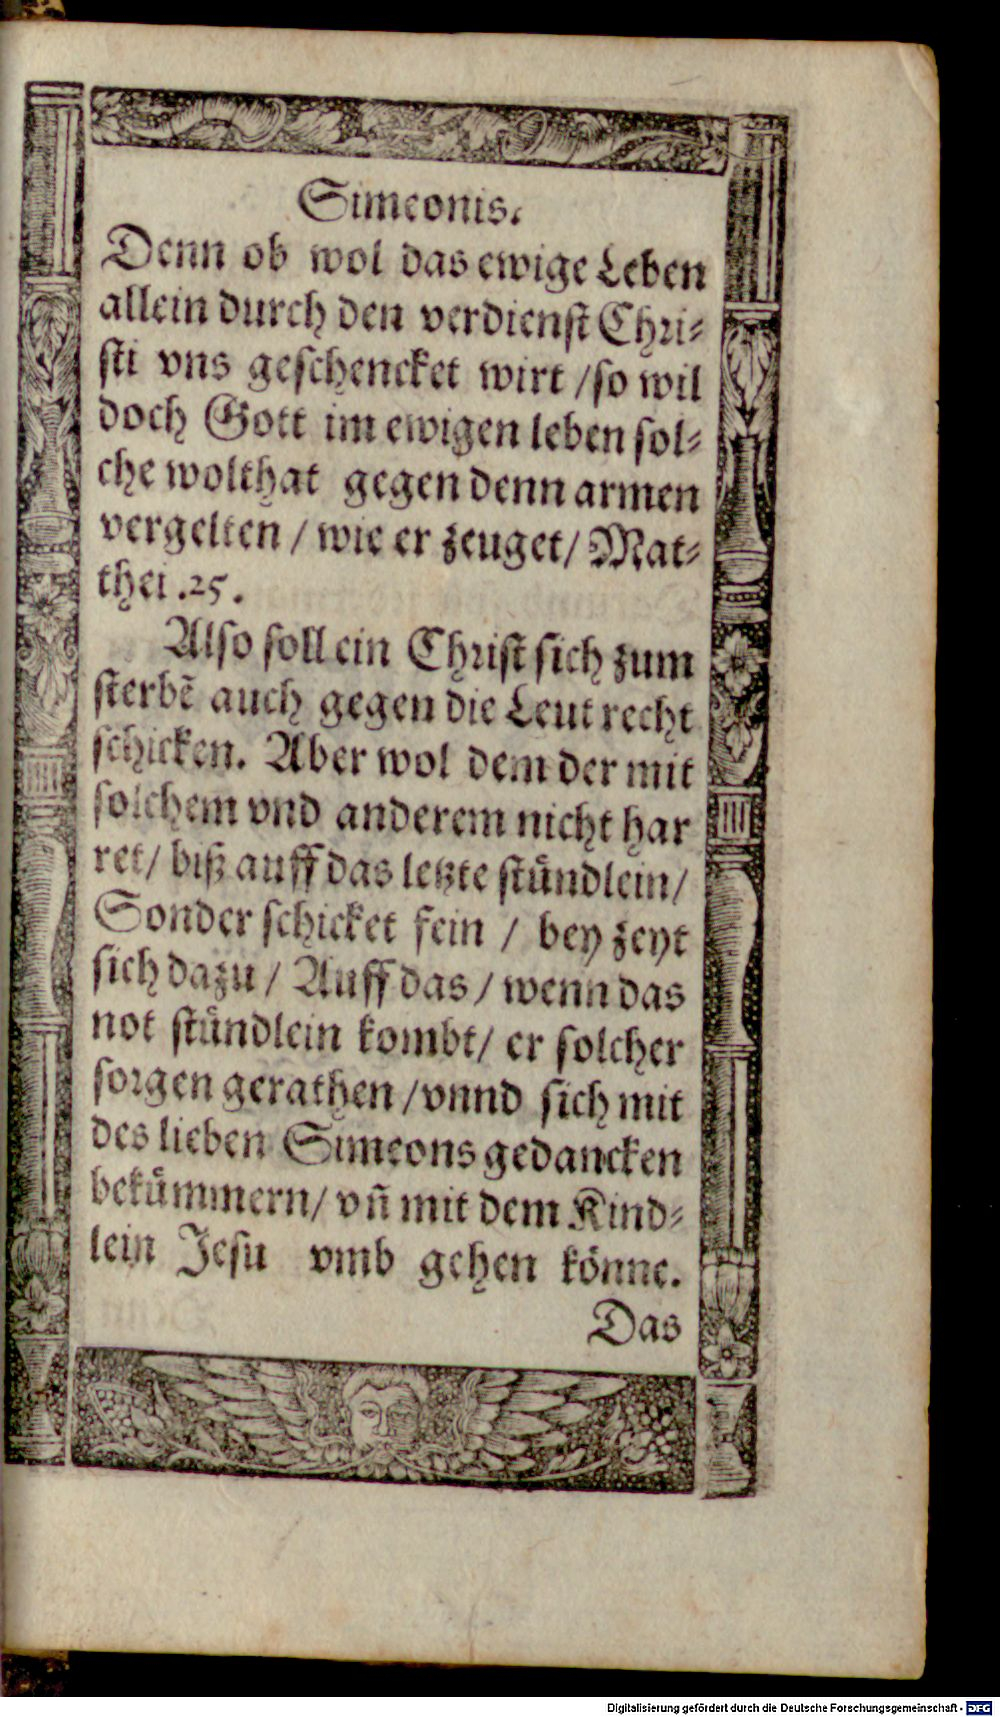 Simeonis.
Denn ob wol das ewige Leben
allein durch den verdienst Chri-
sti vns geschencket wirt / so wil
doch Gott im ewigen leben sol-
che wolthat gegen denn armen
vergelten / wie er zeuget / Mat-
thei .25.
Also soll ein Christ sich zum
sterbē auch gegen die Leut recht
schicken. Aber wol dem der mit
solchem vnd anderem nicht har
ret / biß auff das letzte stündlein /
Sonder schicket fein / bey zeyt
sich dazu / Auff das / wenn das
not stündlein kombt / er solcher
sorgen gerathen / vnnd sich mit
des lieben Simeons gedancken
bekümmern / vn̄ mit dem Kind-
lein Jesu vmb gehen könne.
Das
Digitalisierung gefördert durch die Deutsche Forschungsgemeinschaft - DFG